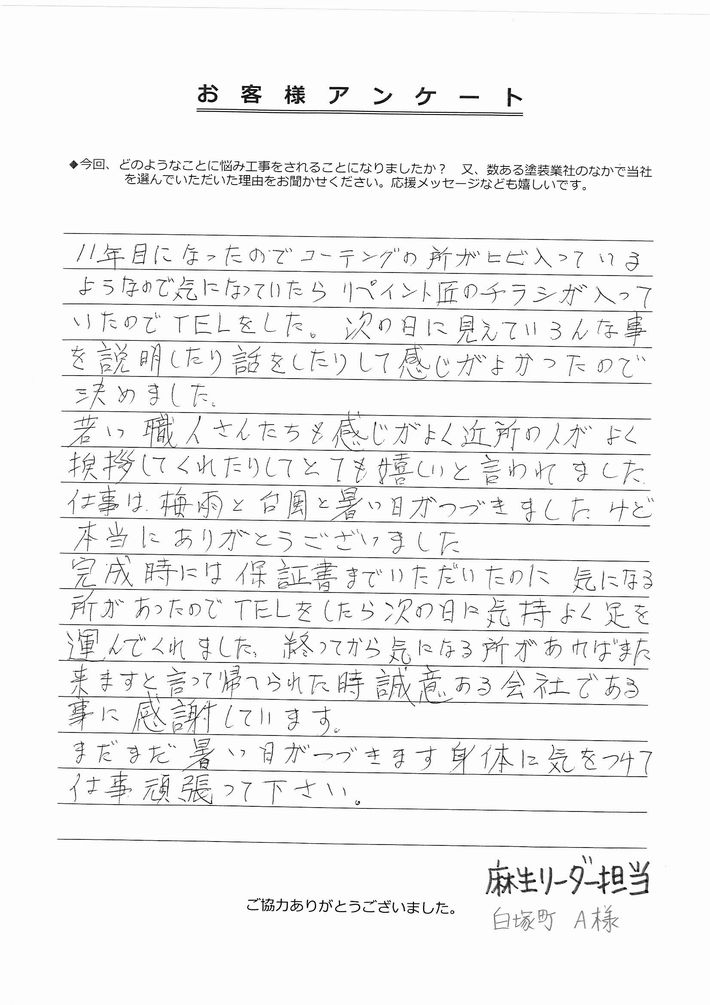 お客様アンケート
◆今回、どのようなことに悩み工事をされることになりましたか？ 又、数ある塗装業社のなかで当社
を選んでいただいた理由をお聞かせください。応援メッセージなども嬉しいです。
11年目になったのでコーティングの所がヒビ入っている
ようなので気になっていたらリペイント匠のチラシが入って
いたのでTELをした。次の日に見えていろんな事
を説明したり話をしたりして感じがよかったので
決めました。
若い職人さんたちも感じがよく近所の人がよく
挨拶してくれたりしてとても嬉しいと言われました
仕事は、梅雨と台風と暑い日がつづきましたけど
本当にありがとうございました
完成時には保証書までいただいたのに 気になる
所があったのでTELをしたら次の日に気持よく足を
運んでくれました、終ってから気になる所があればまた
来ますと言って帰へられた時誠意ある会社である
事に感謝しています。
まだまだ暑い日がつづきます身体に気をつけて
仕事頑張って下さい。
麻生リーダー担当
ご協力ありがとうございました。
白塚町 A様